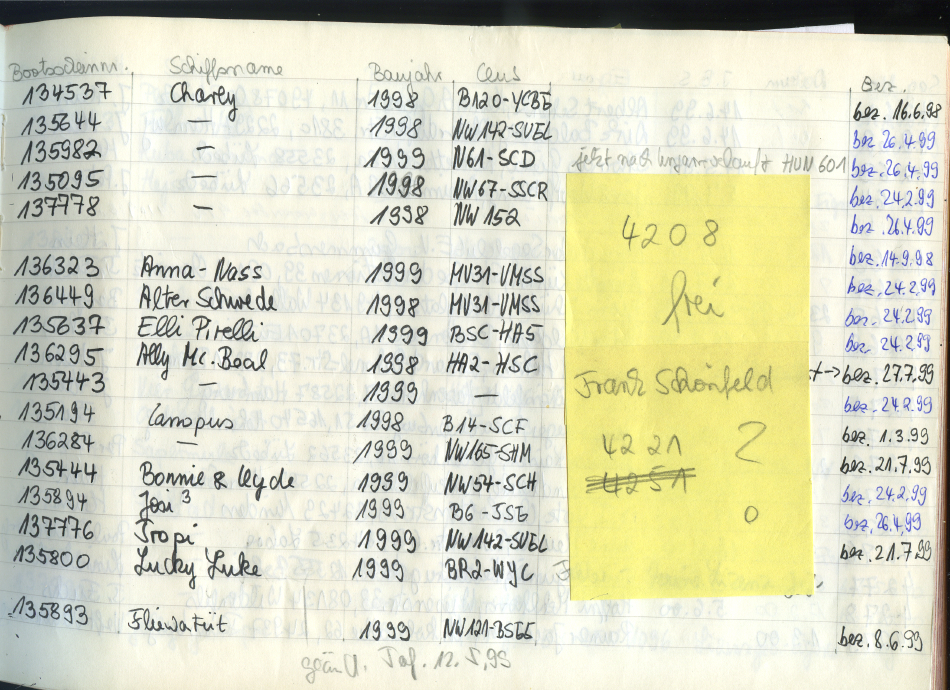 Schiffsname Baujahr Bez.
134537 Charly 1998 B120-YCBE bez. 16.6.98
135644 — 1998 NW142-SVEL bez 26.4.99
135982 — 1999 N61-SCD jetzt nach HUN 601 bez. 26.4.99
135095 — 1998 NW67-SSCR bez. 24.2.99
137778 — 1998 NW152 bez. 26.4.99
4208
bez. 14.9.98
136323 Anna-Nass 1999 MV31-VMSS bez. 24.2.99
136449 Alter Schwede 1998 MV31-VMSS bez. 24.2.99
frei
135637 Elli Pirelli 1999 BSC-HA5 bez. 24.2.99
136295 Ally Mc. Beal 1998 HA2-HSC bez. 27.7.99
135443 — 1999 — bez. 24.2.99
Frank Schönfeld
135194 Canopus 1998 B14-SCF bez. 1.3.99
136284 — 1999 NW165-SHM bez. 21.7.99
4221 ?
135444 Bonnie & Clyde 1999 NW54-SCH bez. 24.2.99
4251
135894 Josi³ 1999 B6-JSE bez. 26.4.99
137776 Tropi 1999 NW142-SVEL bez. 21.7.99
135800 Lucky Luke 1999 BR2-WYC
135893 Fliewatüt 1999 NW121-BSEE bez. 8.6.99
12.5.99